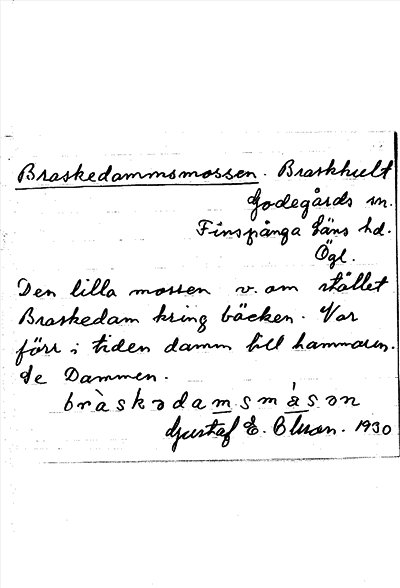 Braskedammsmossen. Braskhult
Godegårds sn.
Finspånga läns hd.
Ögl.
Den lilla mossen v. om stället
Braskedam kring bäcken. Var
förr i tiden damm till hammaren.
Se Dammen.
bràskədamsmåsən
Gustaf E. Olsson. 1930